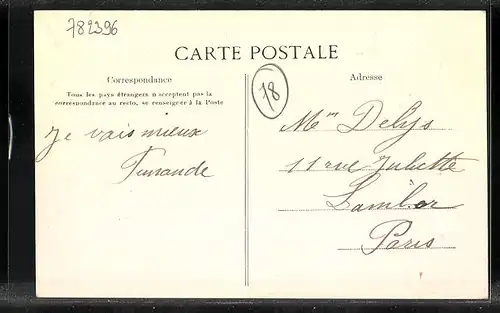 782396
CARTE POSTALE
Correspondance
Tous les pays étrangers n'acceptent pas la
correspondance au recto, se renseigner à la Poste
Je vais mieux
Adresse
78
Mme Delys
11 rue Juliette
Lamber
Paris